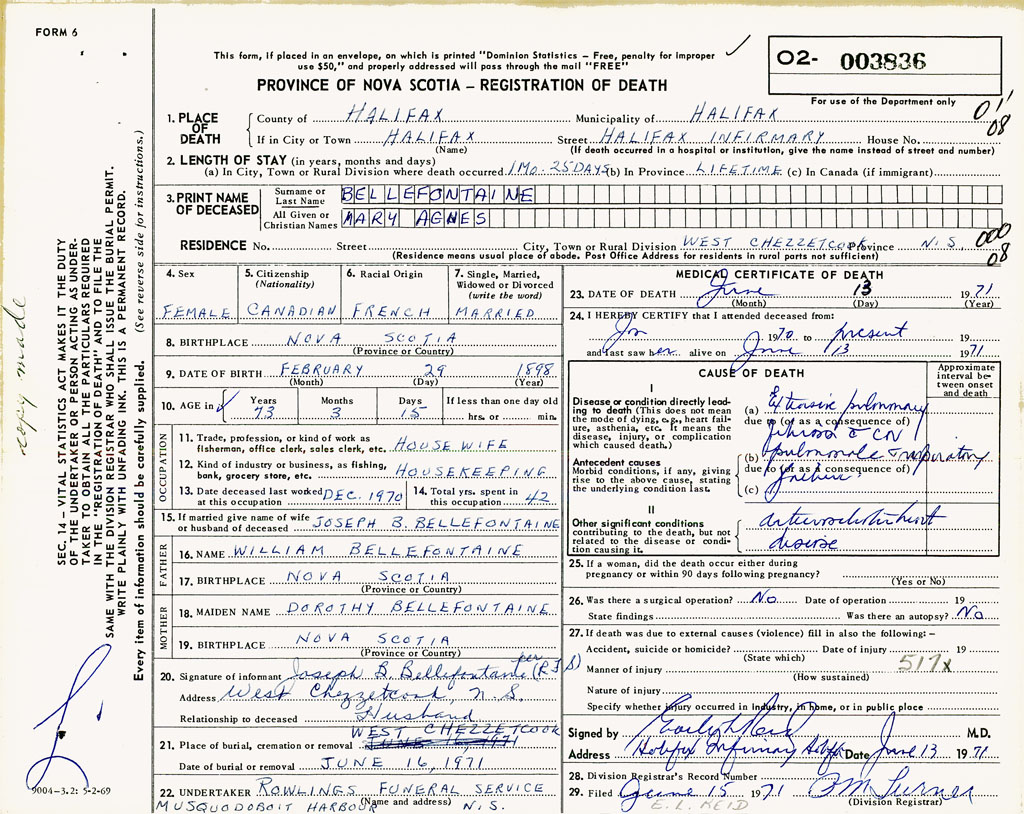 FORM 6
This form, if placed in an envelope, on which is printed "Dominion Statistics – Free, penalty for improper
use $50," and properly addressed will pass through the mail "FREE"
PROVINCE OF NOVA SCOTIA – REGISTRATION OF DEATH
02- 003836
For use of the Department only
08
1. PLACE OF DEATH
County of HALIFAX Municipality of HALIFAX
If in City or Town HALIFAX Street HALIFAX INFIRMARY House No.
(Name) (If death occurred in a hospital or institution, give the name instead of street and number)
2. LENGTH OF STAY (in years, months and days)
(a) In City, Town or Rural Division where death occurred 1 MO. 25 DAYS (b) In Province LIFETIME (c) In Canada (if immigrant)
3. PRINT NAME OF DECEASED
Surname or Last Name BELLEFONTAINE
All Given or Christian Names MARY AGNES
RESIDENCE No. Street City, Town or Rural Division WEST CHEZZETCOOK Province N.S,
000
08
(Residence means usual place of abode. Post Office Address for residents in rural parts not sufficient)
4. Sex
FEMALE
5. Citizenship
(Nationality)
CANADIAN
6. Racial Origin
FRENCH
7. Single, Married,
Widowed or Divorced
(write the word)
MARRIED
8. BIRTHPLACE NOVA SCOTIA
(Province or Country)
9. DATE OF BIRTH FEBRUARY 29 1898
(Month) (Day) (Year)
10. AGE in ✓ Years Months Days If less than one day old
73 3 15 hrs. or min.
OCCUPATION
11. Trade, profession, or kind of work as
fisherman, office clerk, sales clerk, etc. HOUSEWIFE
12. Kind of industry or business, as fishing,
bank, grocery store, etc. HOUSEKEEPING
13. Date deceased last worked
at this occupation DEC. 1970
14. Total yrs. spent in
this occupation 42
15. If married give name of wife
or husband of deceased JOSEPH B. BELLEFONTAINE
FATHER
16. NAME WILLIAM BELLEFONTAINE
17. BIRTHPLACE NOVA SCOTIA
(Province or Country)
MOTHER
18. MAIDEN NAME DOROTHY BELLEFONTAINE
19. BIRTHPLACE NOVA SCOTIA
(Province or Country)
20. Signature of informant Joseph B. Bellefontaine per (R F S)
Address West Chezzetcook, N. S.
Relationship to deceased Husband
21. Place of burial, cremation or removal WEST CHEZZETCOOK
JUNE 16 1971
Date of burial or removal JUNE 16, 1971
22. UNDERTAKER ROWLINGS FUNERAL SERVICE
(Name and address)
MUSQUODOBOIT HARBOUR N.S.
MEDICAL CERTIFICATE OF DEATH
23. DATE OF DEATH June 13 1971
(Month) (Day) (Year)
24. I HEREBY CERTIFY that I attended deceased from:
Jan 1970 to present 19
and last saw her alive on June 13 1971
CAUSE OF DEATH
Approximate interval between onset and death
I
Disease or condition directly leading to death (This does not mean
the mode of dying, e.g., heart failure, asthenia, etc. It means the
disease, injury, or complication
which caused death.)
(a) Extensive pulmonary
due to (or as a consequence of)
fibrosis
Antecedent causes
Morbid conditions, if any, giving
rise to the above cause, stating
the underlying condition last.
(b) pulmonale respiratory
due to (or as a consequence of)
failure
(c)
II
Other significant conditions
contributing to the death, but not
related to the disease or condition causing it.
disease
25. If a woman, did the death occur either during
pregnancy or within 90 days following pregnancy?
(Yes or No)
26. Was there a surgical operation? No Date of operation 19
State findings Was there an autopsy? No
27. If death was due to external causes (violence) fill in also the following:–
Accident, suicide or homicide? Date of injury 19
(State which)
517x
Manner of injury
(How sustained)
Nature of injury
Specify whether injury occurred in industry, in home, or in public place
Signed by M.D.
Address Halifax Infirmary Halifax Date June 13 1971
28. Division Registrar's Record Number
29. Filed June 15 1971 Turner
(Division Registrar)
E. L. REID
SEC. 14 – VITAL STATISTICS ACT MAKES IT THE DUTY
OF THE UNDERTAKER OR PERSON ACTING AS UNDERTAKER TO OBTAIN ALL THE PARTICULARS REQUIRED
IN THE "REGISTRATION OF DEATH" AND TO FILE THE
SAME WITH THE DIVISION REGISTRAR WHO SHALL ISSUE THE BURIAL PERMIT.
WRITE PLAINLY WITH UNFADING INK. THIS IS A PERMANENT RECORD.
Every item of information should be carefully supplied. (See reverse side for instructions.)
copy made
9004-3.2: 5-2-69